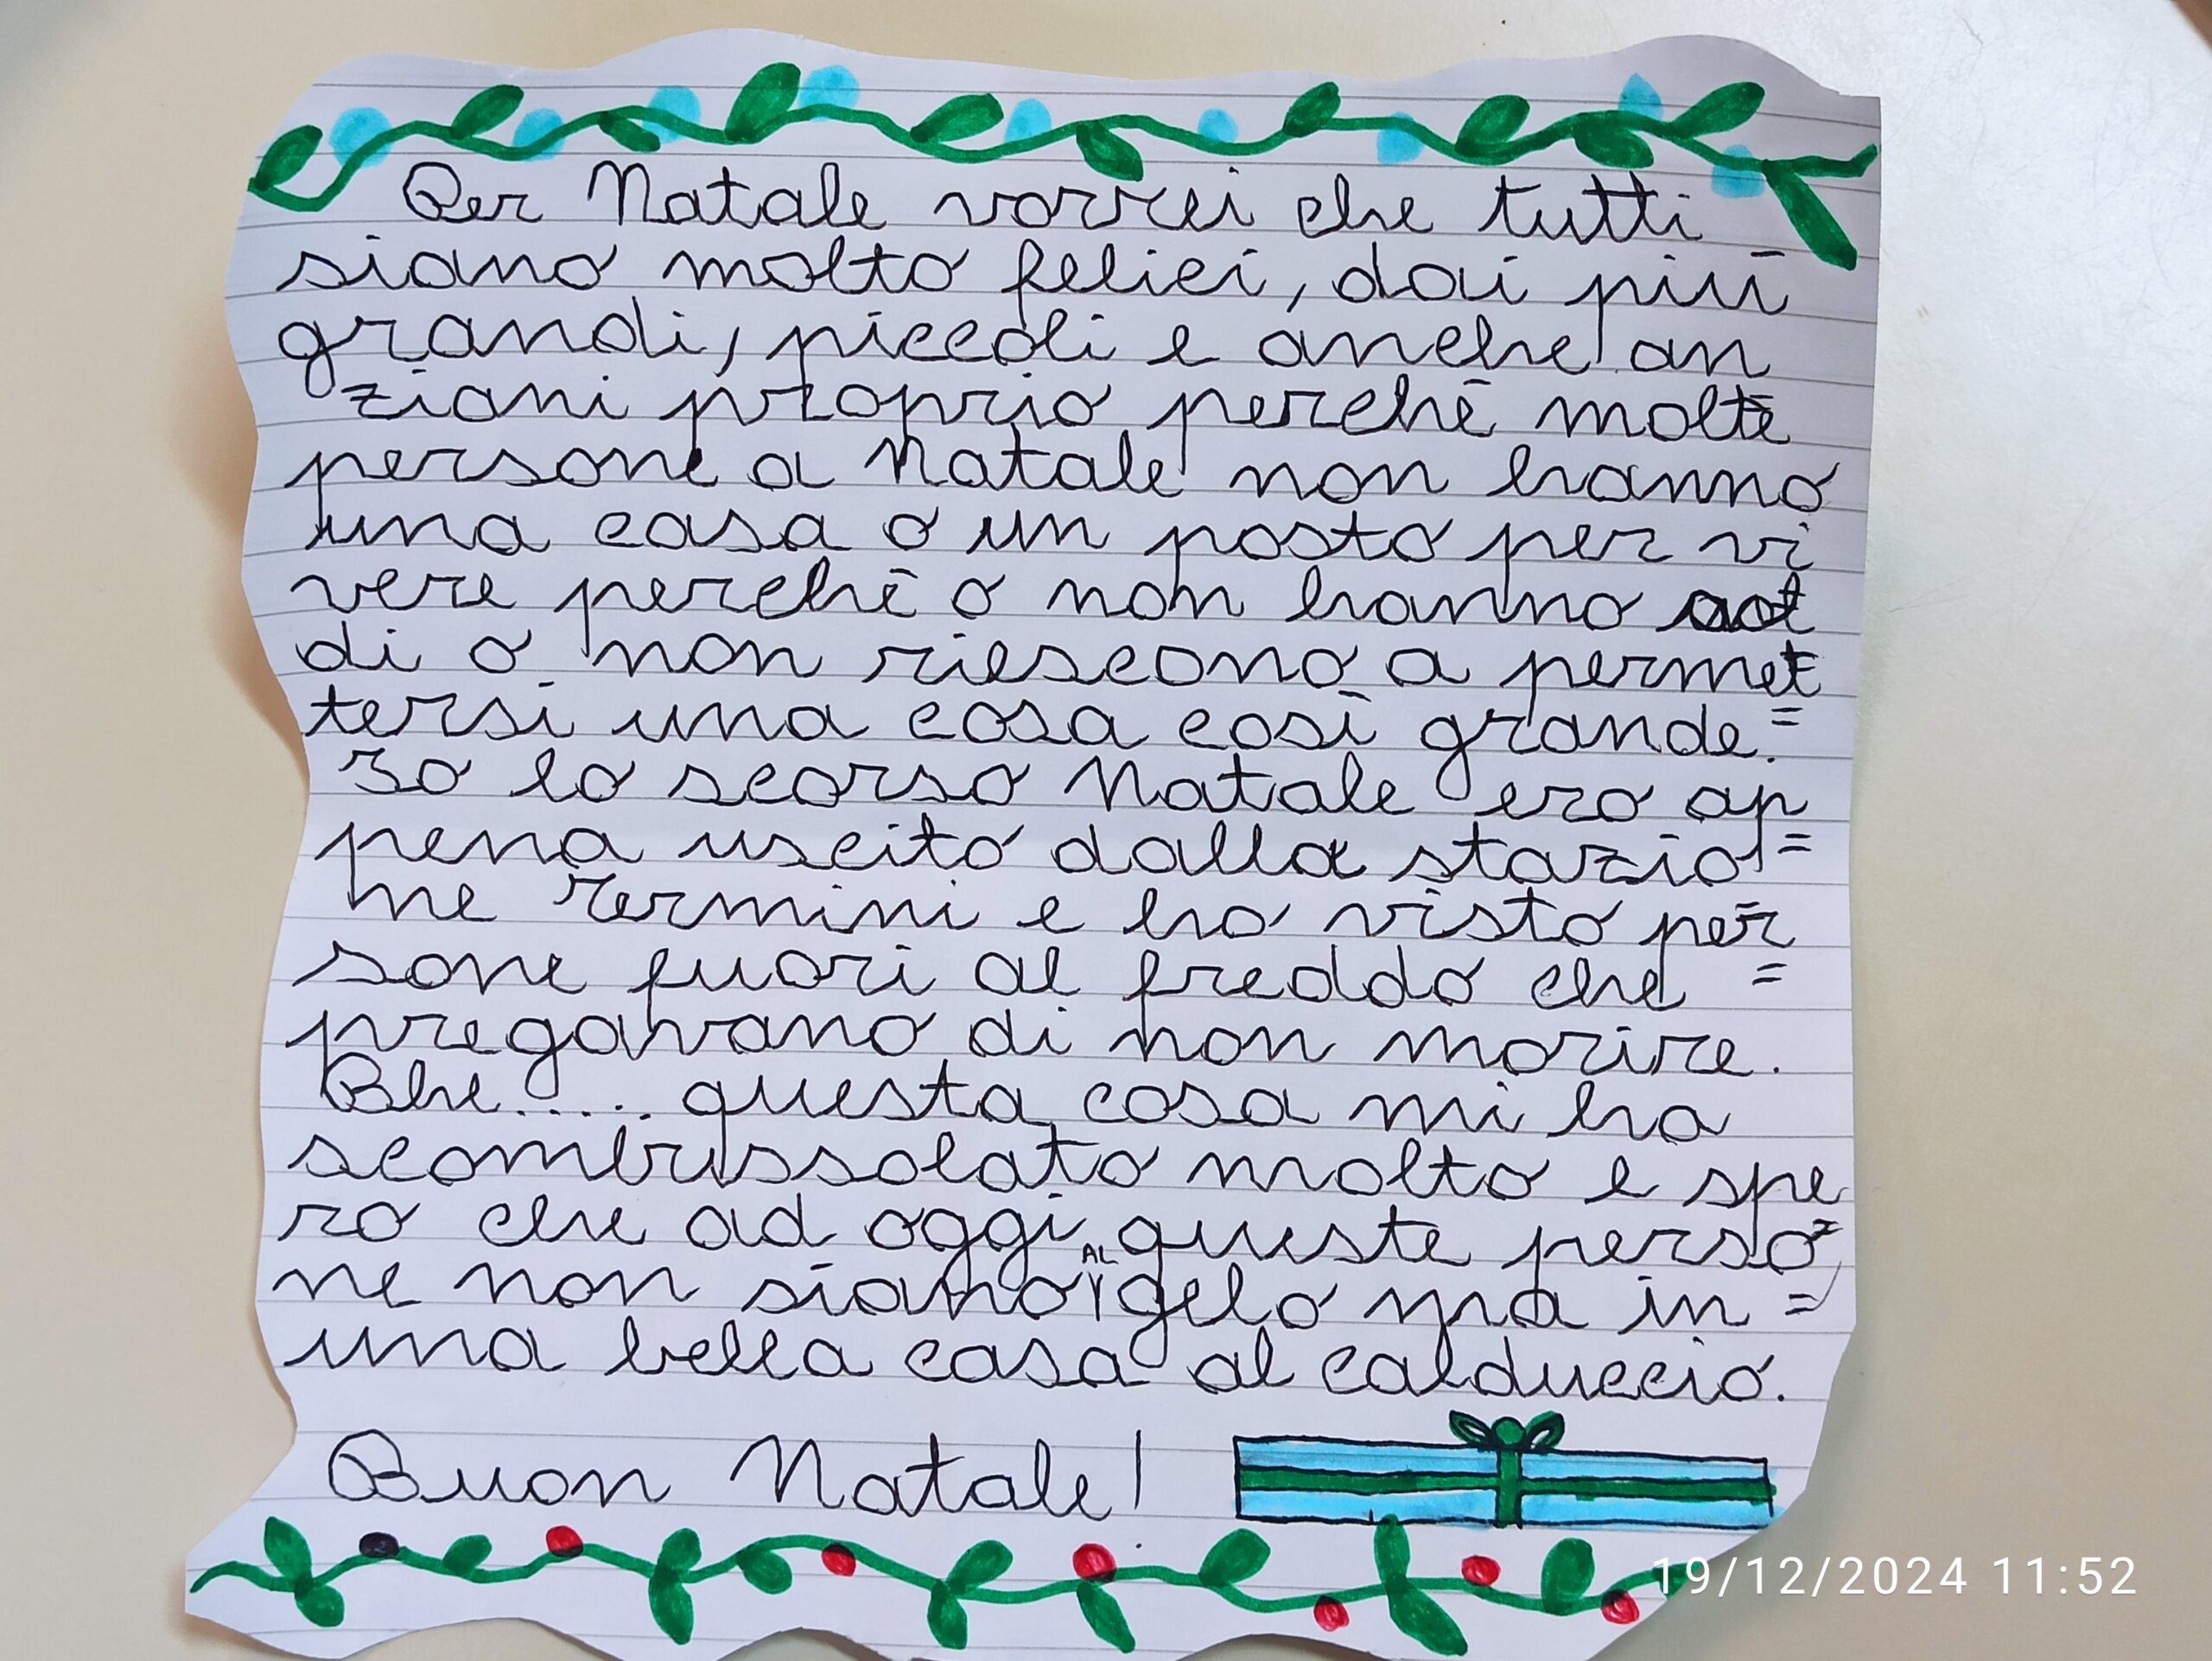 Per Natale vorrei che tutti
siano molto felici, dai più
grandi, piccoli e anche an
ziani proprio perché molte
persone a Natale non hanno
una casa o un posto per vi
vere perché o non hanno
di o non riescono a permet
tersi una cosa così grande.=
Io lo scorso Natale ero ap
pena uscito dalla stazio=
ne Termini e ho visto per
sone fuori al freddo che =
pregavano di non morire.
Bhe..... questa cosa mi ha
scombussolato molto e spe
ro che ad oggi queste perso=
ne non siano AL gelo ma in =
una bella casa al calduccio.
Buon Natale!
19/12/2024 11:52